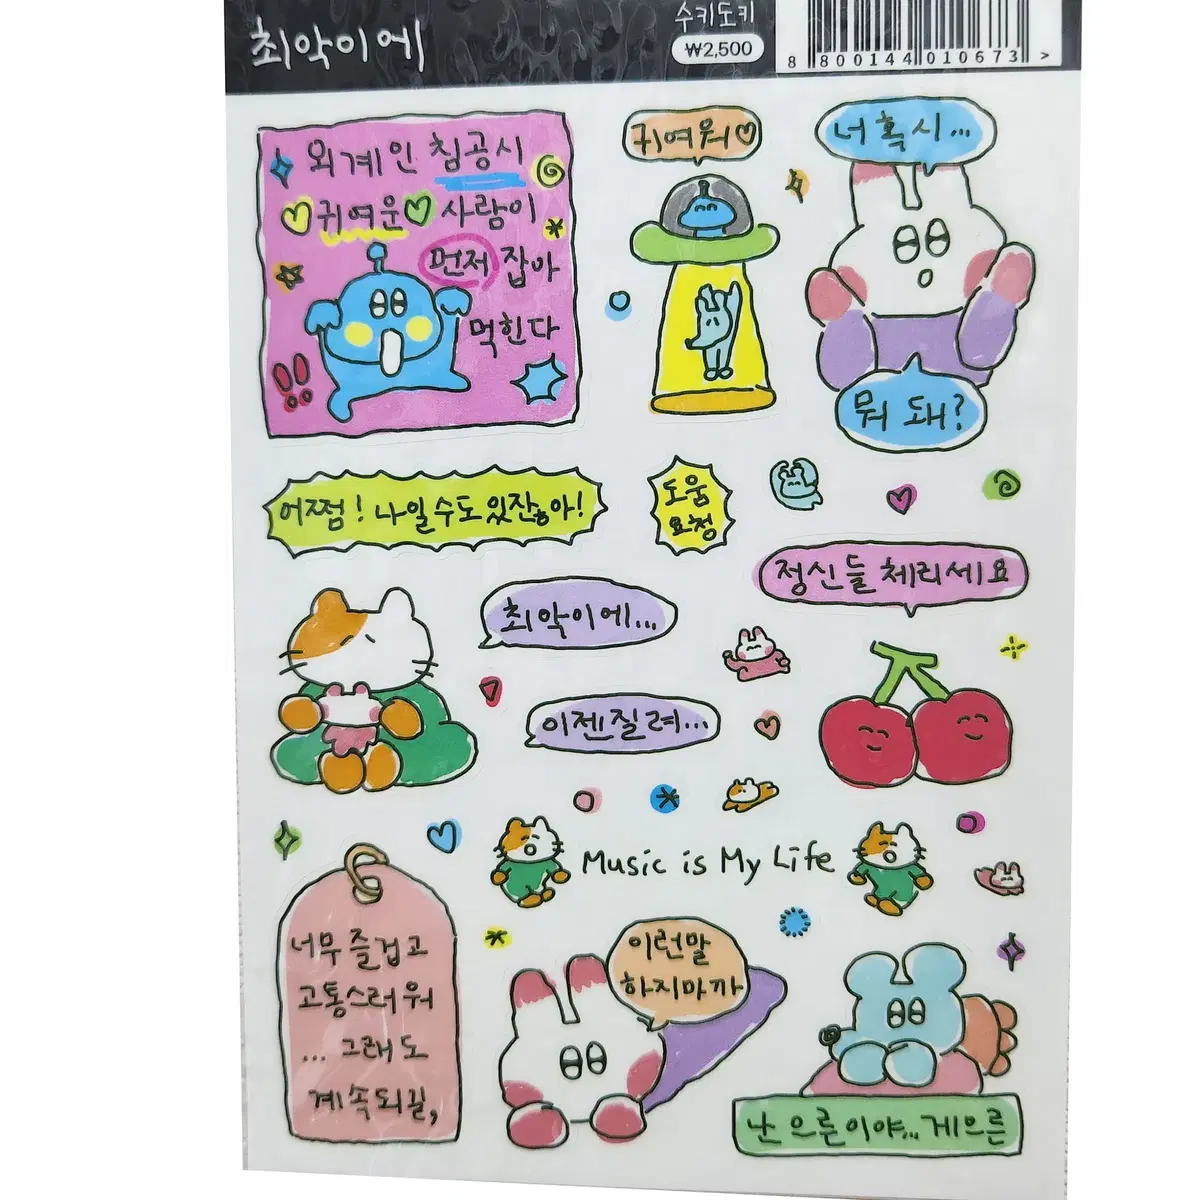 최악이에
수키도키
₩2,500
8 800144 010673 >
외계인 침공시
귀여운 사람이
먼저 잡아
먹힌다
귀여워
너 혹시...
뭐 돼?
어쩜! 나일수도있잖아!
도움
요청
정신들 체리세요
최악이에...
이젠질려...
Music is My Life
너무 즐겁고
고통스러워
... 그래도
계속되길,
이런말
하지마까
난 으른이야... 게으른